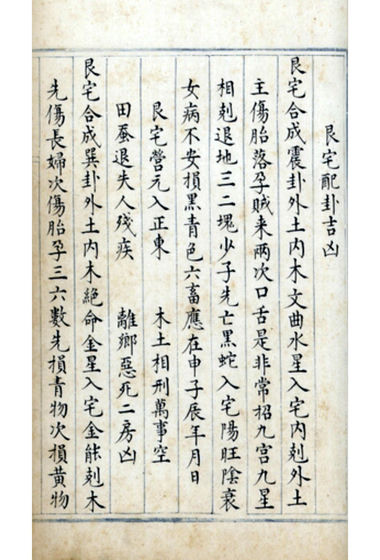 艮宅配卦吉凶
艮宅合成震卦外土内木文曲水星入宅内剋外土
主傷胎落孕賊来兩次口舌是非常招九宫九星
相剋退地三二塊少子先亡黑蛇入宅陽旺陰衰
女病不安損黑青色六畜應在申子辰年月日
艮宅營元入正東 木土相刑萬事空
田蚕退失人殘疾 離鄉惡死二房凶
艮宅合成巽卦外土内木絶命金星入宅金能剋木
先傷長婦次傷胎孕三六數先損青物次損黄物